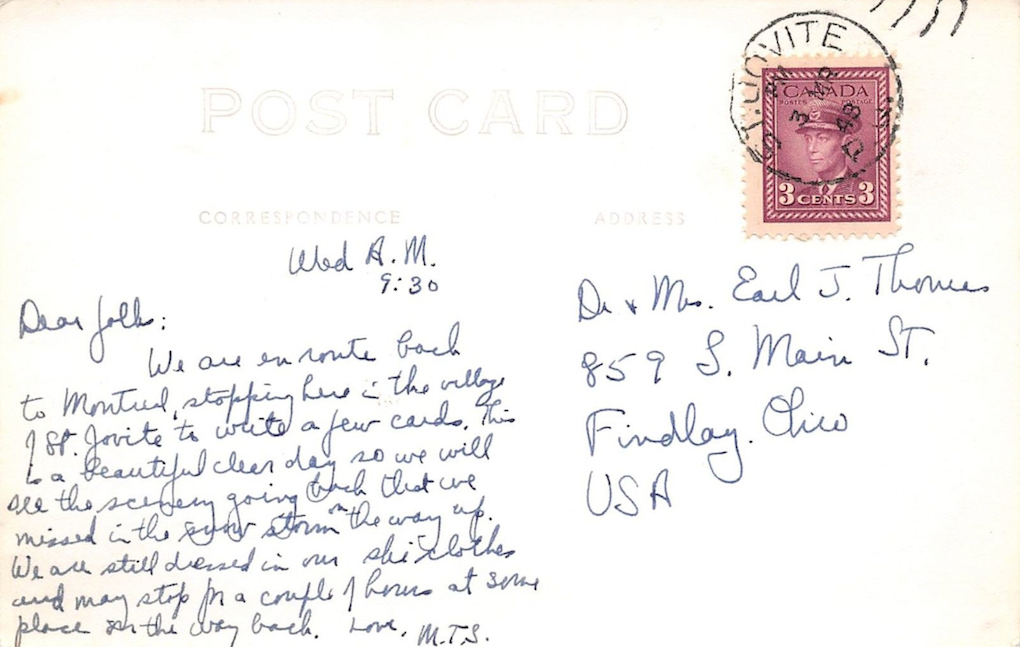 POST CARD
CORRESPONDENCE
ADDRESS
ST. JOVITE
PM
3 MR
48
CANADA
POSTES POSTAGE
3 CENTS 3
Wed A.M.
9:30
Dear folks:
We are en route back
to Montreal, stopping here in the village
of St. Jovite to write a few cards. This
is a beautiful clear day so we will
see the scenery going back that we
missed in the snow storm on the way up.
We are still dressed in our ski clothes
and may stop for a couple of hours at some
place on the way back. Love, M.T.S.
Dr & Mrs. Earl J. Thomas
859 S. Main St.
Findlay. Ohio
USA